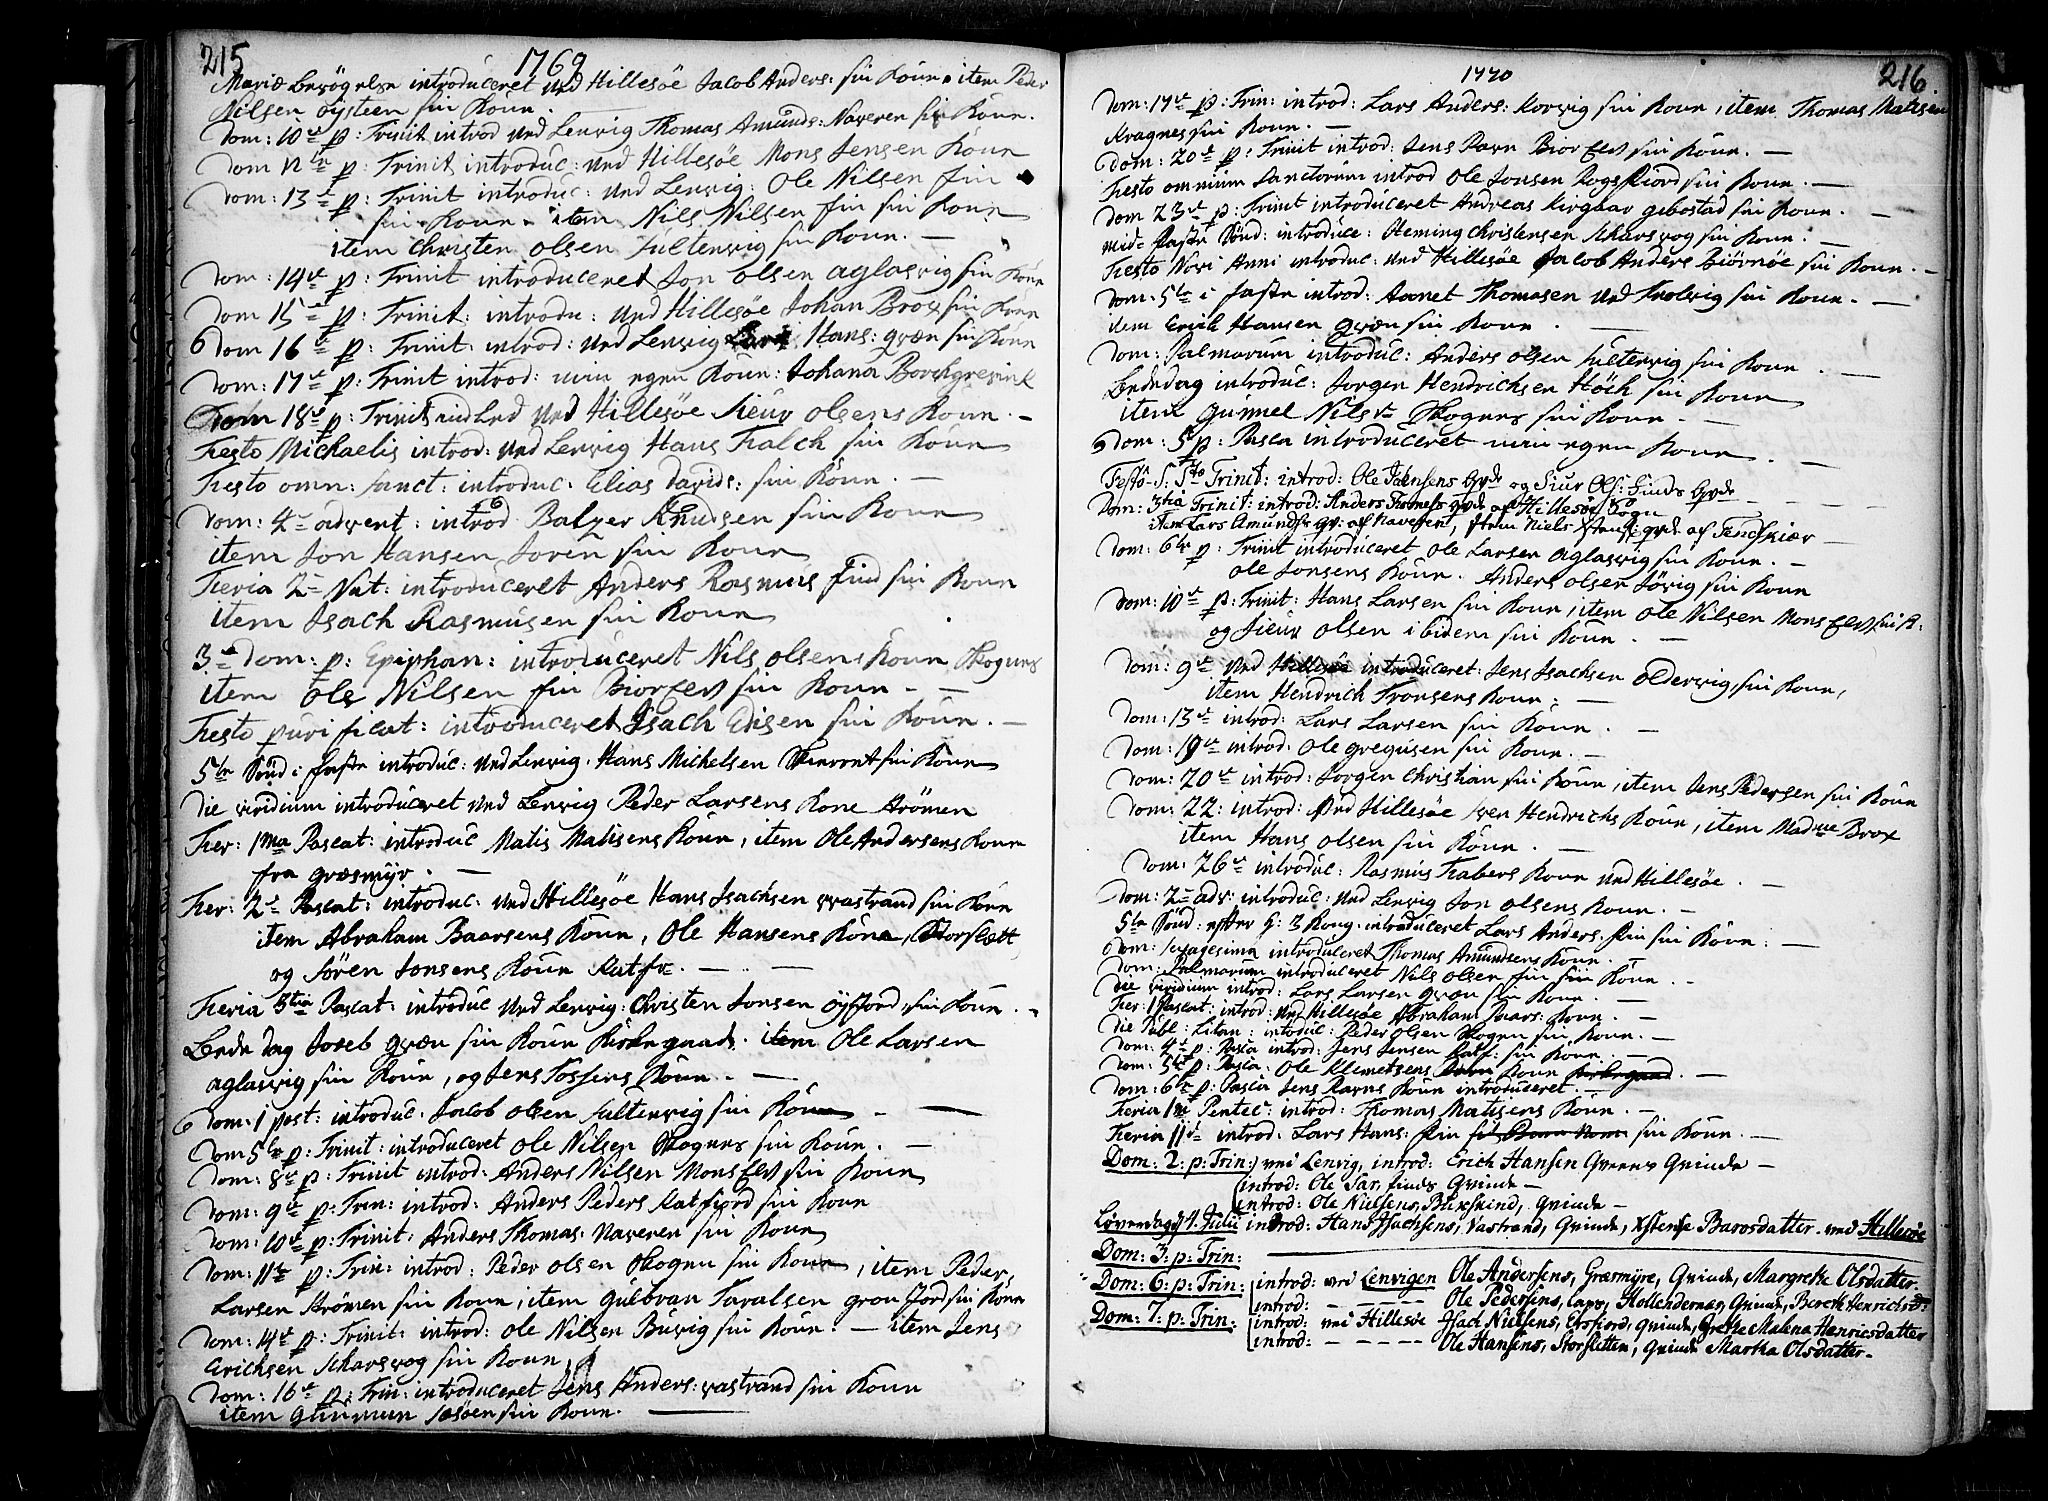 215
1769
Mariæ besögelse introduceret ved Hillesöe Jacob Anders: sin Koun. item Peder
Nilsen öysteen sin Koun.
Dom: 10de p: Trinit introd ved Lenvig Thomas Amunds: Naveren sin Koun.
Dom 12te p: Trinit introduc: ved Hillesöe Mons Jensen Koun
Dom: 13de p: Trinit introduc: ved Lenvig: Ole Nilsen fin
sin Koun. item Nils Nilsen fin sin Koun
item Christen Olsen Sultenvig sin Koun. —
Dom: 14de p: Trinit introduceret Jon Olsen aglasvig sin Koun
Dom 15de p: Trinit: introdu: ved Hillesöe Johan Brox sin Koun
Dom 16de p: Trinit: introd: ved Lenvig Lars Hans: qvæn sin Koun
Dom: 17de p: Trinit introd: min egen Koun: Johana Borchgrevink
Dom 18de p: Trinit ved Hillesöe Sieur Olsens Koun. —
Festo Michaelis introd: ved Lenvig Hans Falch sin Koun
Festo omn: sanct: introduc: Elias Davids: sin Koun. —
Dom: 4de advent: introd Balzer Knudsen sin Koun
item Jon Hansen Joven sin Koun
Feria 2de Nat: introduceret Anders Rasmus find sin Koun
item Isach Rasmusen sin Koun
3de Dom: p: Epiphan: introduceret Nils Olsens Koun Skognes
item Ole Nilsen fin Biorelv sin Koun. —
Festo purificat: introduceret Isach Edisen sin Koun. —
5te Sönd: i faste introduc: ved Lenvig. Hans Michelsen sin Koun
Die viridium introduceret ved Lenvig Peder Larsens Kone Strömen
Fer: 1ma Pascat: introduc Matis Matisens Koun, item Ole Andersens Koun
fra græsmyr. —
Fer: 2de Pascat: introduc: ved Hillesöe Hans Isachsen vastrand sin Koun
item Abraham Baarsens Koun, Ole Hansens Kona, Storslætt
og Sören Jonsens Koun Katf. —
Feria 3tia Pascat: introduc ved Lenvig: Christen Jonsen öyfjord, sin Koun.
Bededag Joseb qvæn sin Koun Kirkegaard. item Ole Larsen
aglasvig sin Koun, og Jens Tossens Koun. —
Dom: 1 post: introduc. Jacob Olsen Sultenvig sin Koun —
Dom 5te p: Trinit: introduceret Ole Nilsen Skognes sin Koun. —
Dom: 8de p: Trinit introd: Anders Nilsen Monselv sin Koun
Dom: 9de p: Trin: introd: Anders Peders Katfiord sin Koun
Dom: 10de p: Trinit: Anders Thomas: Naveren sin Koun
Dom: 11te p: Trin: introd: Peder Olsen Skogen sin Koun, item Peder
Larsen Strömen sin Koun, item Gulbran Taralsen grou fiord sin Koun
Dom: 14de p: Trinit: introd: Ole Nilsen Buvig sin Koun. — item Jens
Erichsen Skarsvog sin Koun
Dom: 16de p: Trin: introduceret Jens Anders: vastrand sin Koun
item Gunmun sin Koun. —
1770
216
Dom: 17de p: Trin: introd: Lars Anders: Korvig sin Koun, item Thomas Matisen
Kragnes sin Koun. —
Dom: 20de p: Trinit introd: Jens Ravn Biorelv sin Koun. —
Festo omnium Sanctorum introd Ole Jonsen Rogsfiord sin Koun. —
Dom 23de p: Trinit introduceret Andreas Kirgaar gibostad sin Koun. —
Mid-faste Sönd: introduce: Heming Christensen Skarsvog sin Koun. —
Festo Novi Anni introduc: ved Hillesöe Jacob Anders Biörnöe sin Koun. —
Dom: 5te i faste introd: Aanet Thomasen ved Trolvig sin Koun. —
item Erich Hansen qvæn sin Koun. —
Dom: Palmarum introduc: Anders Olsen Sultenvig sin Koun. —
Bededag introduc: Jorgen Hendrichsen Höek sin Koun
item Gunnel Nils Skognes sin Koun. —
Dom: 5te p: Pasca introduceret min egen Koun. —
Festo S. Stæ Trinit: introd: Ole Jahnsens Qvde og Siur Ols: Finds Qvde
Dom: 3tia Trinit: introd: Anders Qvde af Hillesöe Sogn
item Lars Amunds: qv: af Naveren, item Niels qvde af Fendskiær
Dom: 6te p: Trinit introduceret Ole Larsen aglasvig sin Koun. —
Ole Jonsens Koun. Anders Olsen Jövig sin Koun
Dom: 10de p: Trinit: Hans Larsen sin Koun, item Ole Nilsen Monselv sin K:
og Sieur Olsen ibidem sin Koun. —
Dom: 9de ved Hillesöe introduceret: Jens Isachsen oldervig, sin Koun,
item Hendrich Tronsens Koun: —
Dom: 13de introd: Lars Larsen sin Koun. —
Dom: 19de introd: Ole Gregusen sin Koun. —
Dom: 20de introd: Jorgen Christian sin Koun, item Jens Pedersen sin Koun
Dom: 22: introd: ved Hillesöe Iver Hendrichs Koun, item Madme Brox
item Hans Olsen sin Koun. —
Dom: 26de introduc: Rasmus Fabers Koun ved Hillesöe. —
Dom: 2de adv: introduc: ved Lenvig Jon Olsens Koun. —
5te Sönd: efter H: 3 Kong: introduceret Lars Anders. fin sin Koun: —
Dom: sexagesima introduceret Thomas Amundsens Koun. —
Dom: Palmarum introduceret Nils Olsen fin sin Koun. —
Die viridium introd: Lars Larsen qvæn sin Koun. —
Fer: 1 Pascat: introd: ved Hillesöe Abraham Baars: Koun. —
Die Publ: Litan: introduc: Peder Olsen Skogen sin Koun. —
Dom: 4de p: Pasca introd: Jens Jensen Katf: sin Koun. —
Dom: 5te p: Pasca: Ole Klemetsens Koun Kirkegaard. —
Dom: 6te p: Pasca Jens Ravns Koun introduceret. —
Feria 1ma Pentec: introd: Thomas Matisens Koun. —
Feria 11de introd: Lars Hans: fin sin Koun. —
Dom: 2: p: Trin: ved Lenvig, introd: Erich Hansen Qvæns Qvinde —
introd: Ole Lar: finds Qvinde —
introd: Ole Nielsens, Blixskind, Qvinde —
Löverdag d 4. Julii introd: Hans Isachsens, Vastrand, Qvinde, Barosdatter. ved Hillesöe
Dom: 3: p: Trin:
Dom: 6: p: Trin: introd: ved Lenvigen Ole Andersens, Græsmyre, Qvinde, Margrethe Olsdatter.
introd: — — — — Ole Pedersens, Hollendernæs, Qvinde, Bereth Henrichsd:
Dom: 7: p: Trin: introd: ved Hillesöe Isach Nielsens, Ersfiord, Qvinde, Grethe Malena Henricsdatter
introd: — — — — Ole Hansens, Storsletten, Qvinde Martha Olsdatter. —